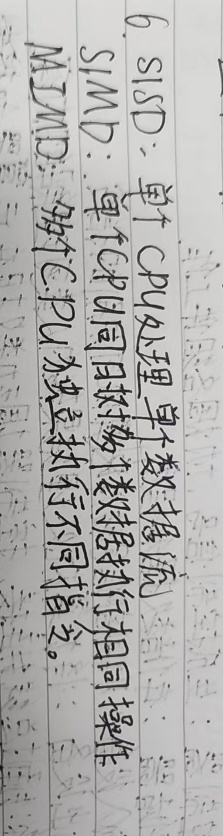 6 SISD: 单个CPU处理单个数据流
SIMD: 单个CPU同时对多个数据执行相同操作
MIMD: 多个CPU独立执行不同指令。